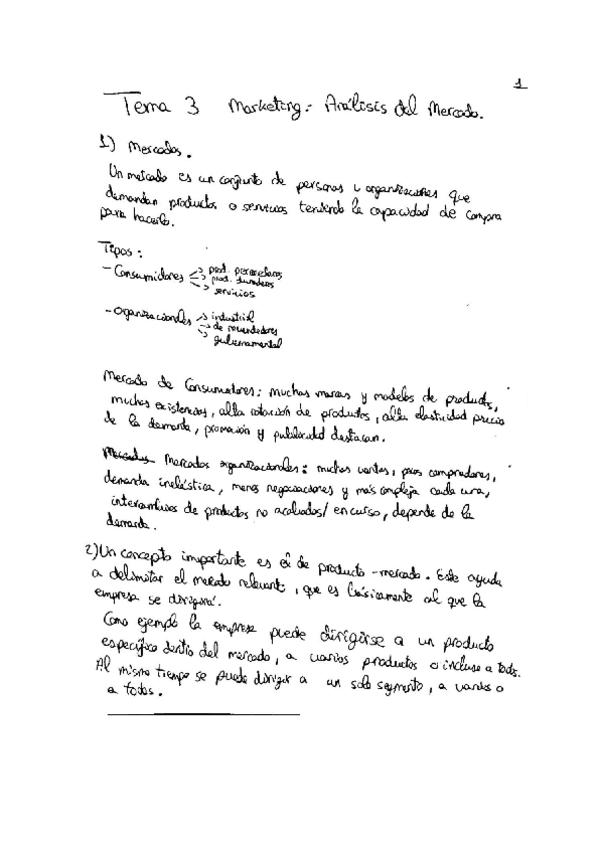 1
Tema 3 Marketing: Análisis del Mercado.
1) Mercados.
Un mercado es un conjunto de personas u organizaciones que
demandan productos o servicios teniendo la capacidad de compra
para hacerlo.
Tipos:
- Consumidores → prod. perecederos
→ prod. duraderos
→ servicios
- Organizacionales → industrial
→ de revendedores
→ gubernamental
Mercado de Consumidores: muchas marcas y modelos de productos,
muchas existencias, alta rotación de productos, alta elasticidad precio
de la demanda, promoción y publicidad destacan.
Mercados organizacionales: muchas ventas, pocos compradores,
demanda inelástica, menos negociaciones y más compleja cada una,
intercambios de productos no acabados/en curso, depende de la
demanda.
2) Un concepto importante es el de producto-mercado. Este ayuda
a delimitar el mercado relevante, que es básicamente al que la
empresa se dirigirá.
Como ejemplo la empresa puede dirigirse a un producto
específico dentro del mercado, a varios productos o incluso a todos.
Al mismo tiempo se puede dirigir a un solo segmento, a varios o
a todos.